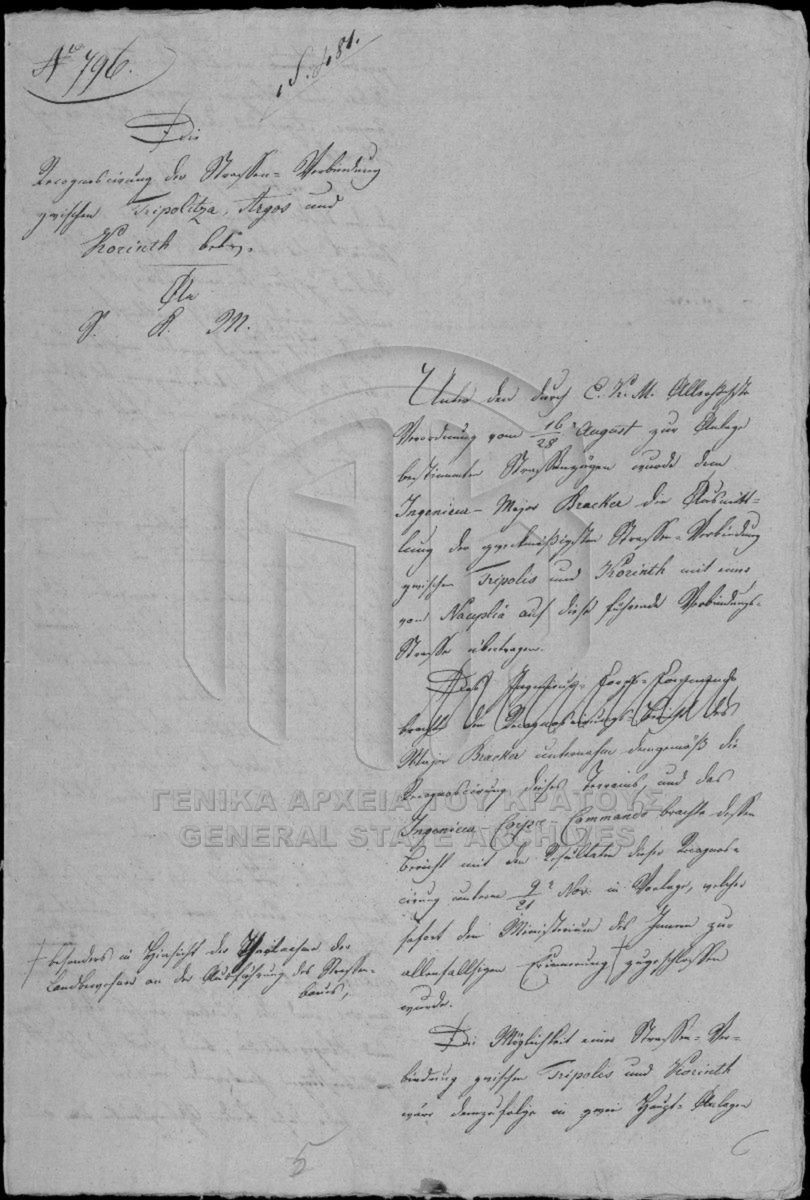 No 796.
Die
Recognoscirung der Strassen-Verbindung
zwischen Tripolitza, Argos und
Korinth betr.
An
S. K. M.
Unter den durch E. K. M. Allerhöchste
Verordnung vom 16/28 August zur Anlage
bestimmten Strassenzügen wurde dem
Ingenieur-Major Bracker die Ausmitt-
lung der zweckmäßigsten Strassen-Verbindung
zwischen Tripolis und Korinth mit einer
von Nauplia auf diese führende Verbindungs-
Strasse übertragen.
Das Ingenieur-Corps-Commando
brachte den Recognoscirungs-Bericht des
Major Bracker unternahm demgemäß die
Recognoscirung dieses Terrains, und das
Ingenieur Corps-Commando brachte dessen
Bericht mit den Resultaten dieser Recognos-
cirung unterm 9/21 Nov. in Vorlage, welcher
sofort dem Ministerium des Innern zur
allenfallsigen Erinnerung zugeschlossen
wurde.
besonders in Hinsicht der Theilnahme der
Landbewohner an der Ausführung des Strassen-
baues,
Die Möglichkeit einer Strassen-Ver-
bindung zwischen Tripolis und Korinth
wäre demzufolge in zwei Haupt-Anlagen
5
6
ΓΕΝΙΚΑ ΑΡΧΕΙΑ ΤΟΥ ΚΡΑΤΟΥΣ
GENERAL STATE ARCHIVES